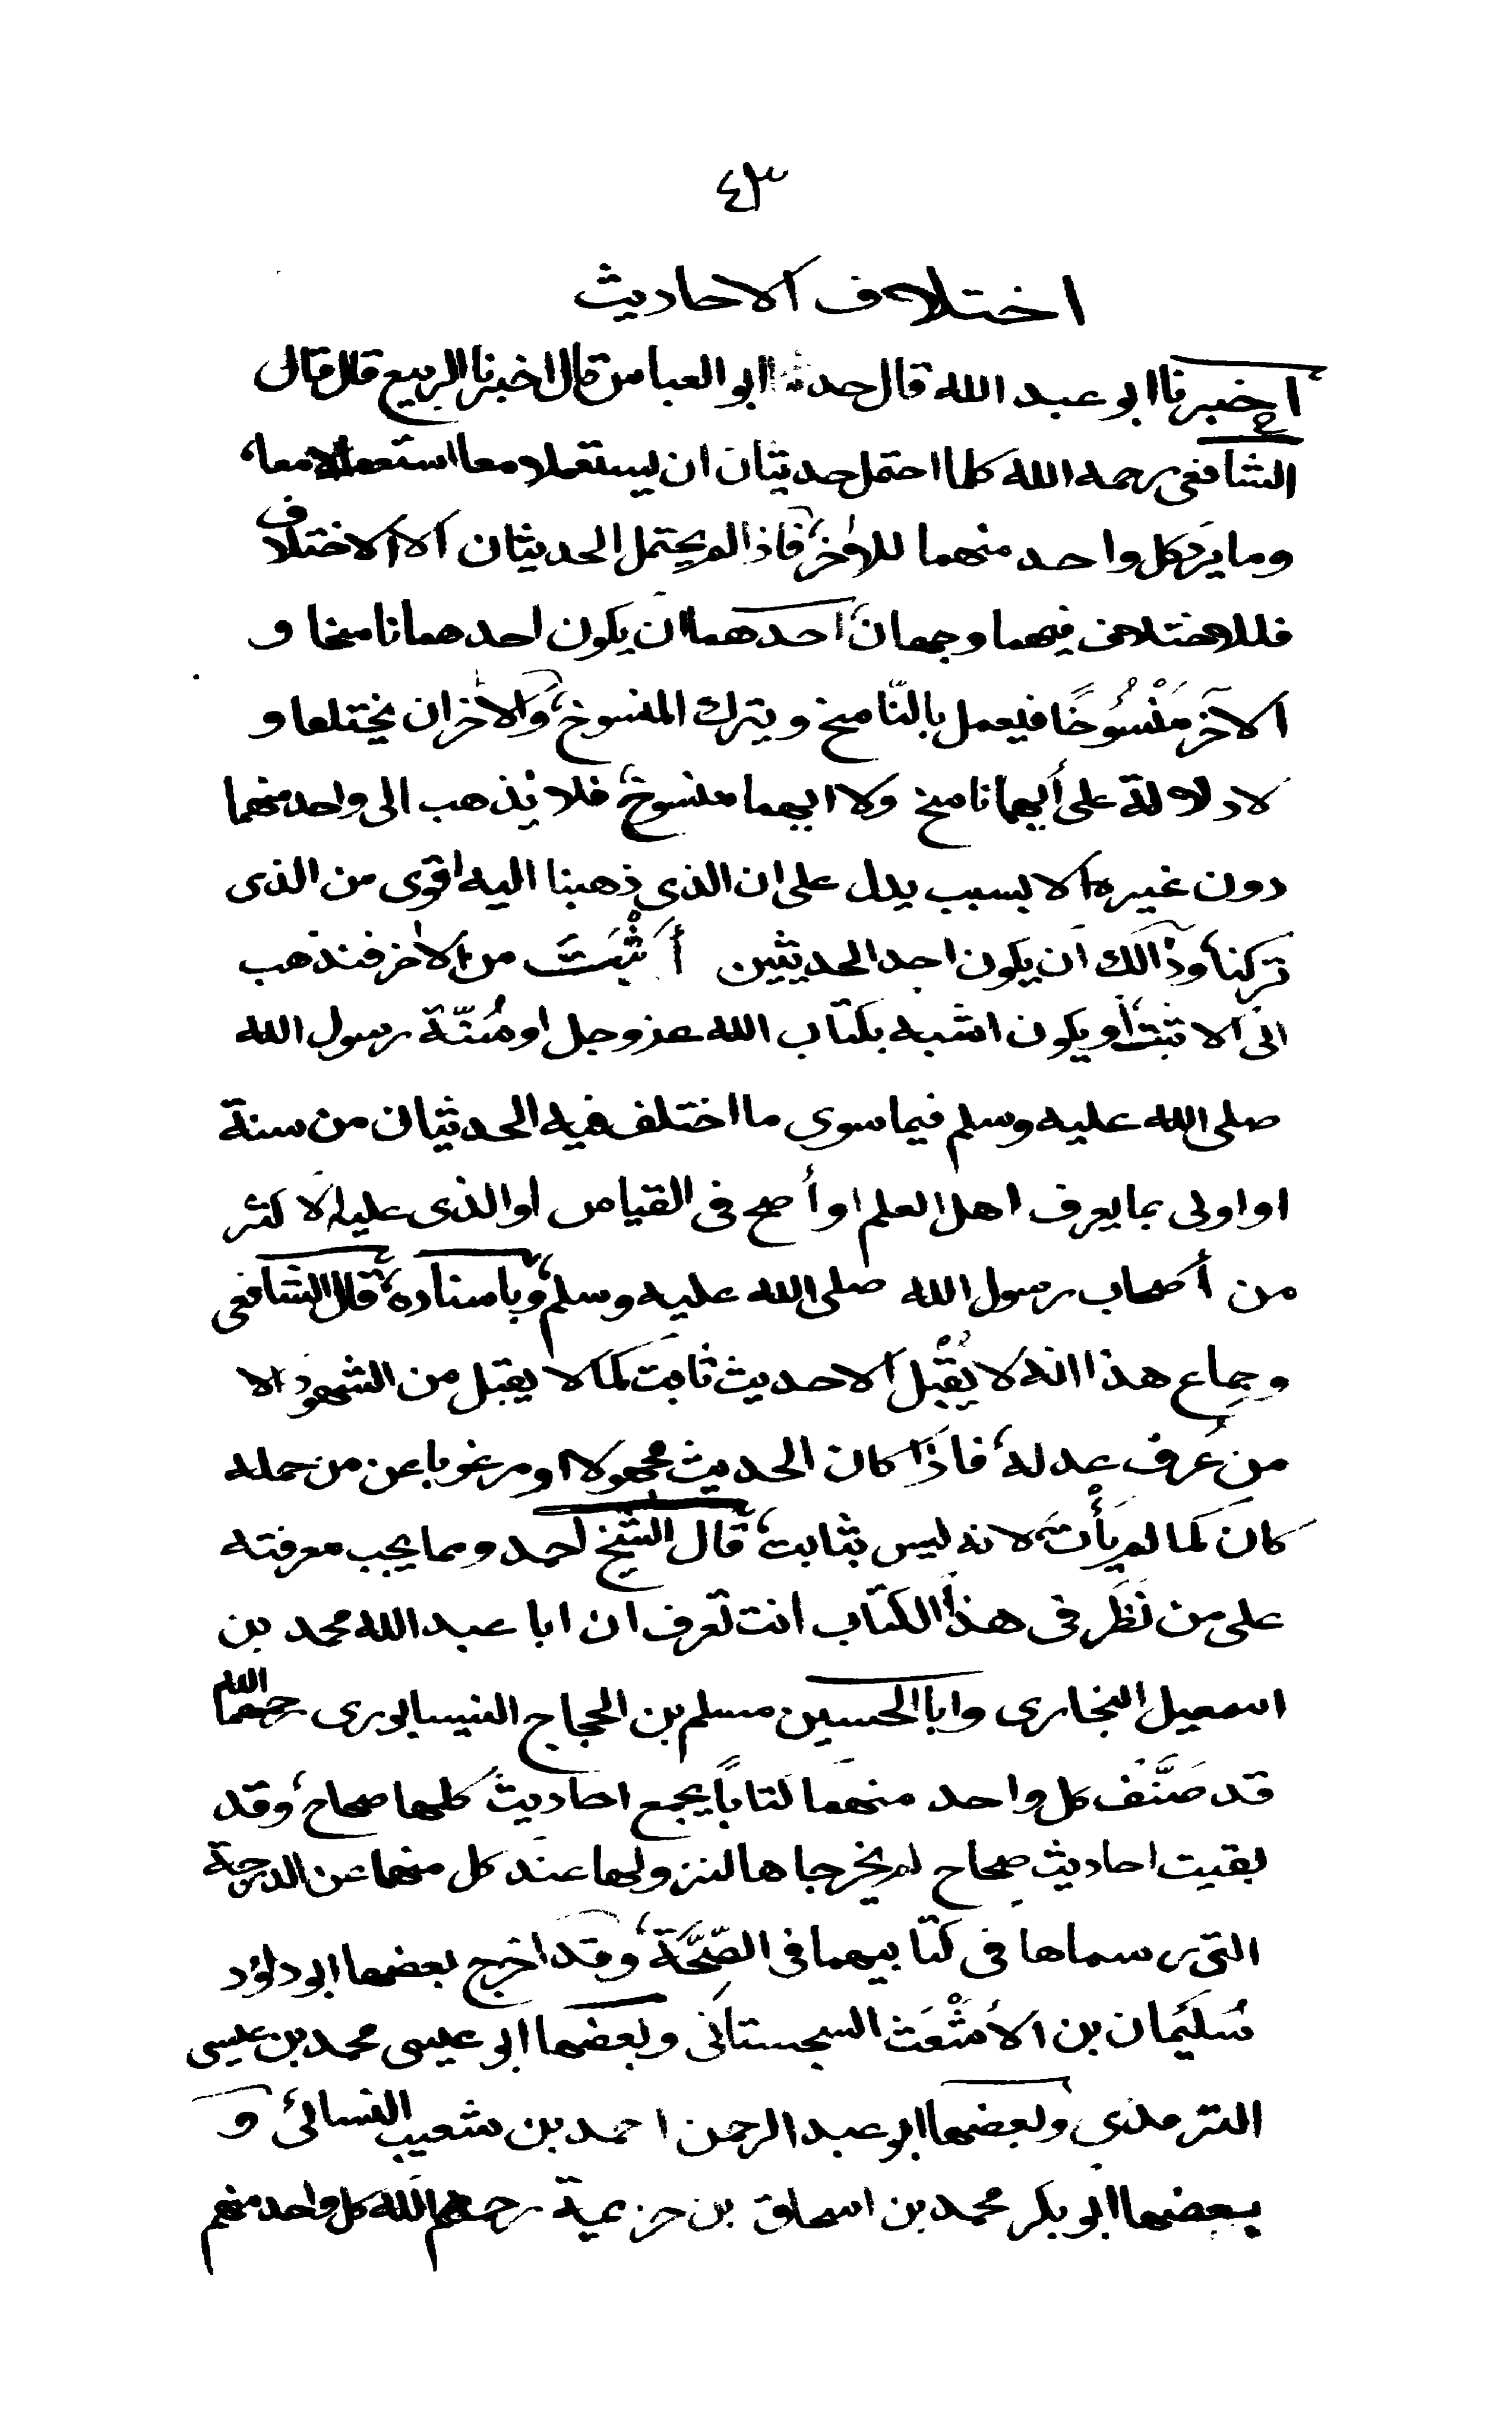 ٤٣
اختلاف الاحاديث
اخبرنا ابو عبد الله قال حدثنا ابو العباس قال اخبرنا الربيع قال قال
الشافعى رحمه الله كلما احتمل حديثان ان يستعملا معا استعملا معا،
وما يرد كل واحد منهما للآخر، فاذا لم يحتمل الحديثان الا الاختلاف
فللاختلاف فيهما وجهان، احدهما ان يكون احدهما ناسخا و
الآخر مَنْسُوخًا فيعمل بالنّاسخ ويترك المنسوخ، والآخر ان يختلفا و
لا دلالة على أيهما ناسخ ولا ايهما منسوخ، فلا نذهب الى واحد منهما
دون غيره الا بسبب يدل على ان الذى ذهبنا اليه اقوى من الذى
تركنا، وذالك ان يكون احد الحديثين أَثْبَتَ من الآخر فنذهب
الى الاثبت، أو يكون اشبه بكتاب الله عز وجل او سُنّة رسول الله
صلى الله عليه وسلم فيما سوى ما اختلف فيه الحديثان من سنة
او اولى بما يعرف اهل العلم او أصح فى القياس او الذى عليه الاكثر
من أصحاب رسول الله صلى الله عليه وسلم، وباسناده، قال الشافعى
وجماع هذا انه لا يُقْبل الا حديث ثابت كما لا يقبل من الشهود الا
من عُرف عدله، فاذا كان الحديث مجهولا او مرغوبا عن من حمله
كان كما لم يَأْت لانه ليس بثابت، قال الشيخ احمد ومما يجب معرفته
على من نَظَر فى هذا الكتاب انت تعرف ان ابا عبد الله محمد بن
اسمعيل البخارى وابا الحسين مسلم بن الحجاج النيسابورى رحمهما الله
قد صَنَّف كل واحد منهما كتاباً يجمع احاديث كلها صحاح، وقد
بقيت احاديث صحاح لم يخرجاها لنزولها عند كل منهما عن الدرجة
التى رسماها فى كتابيهما فى الصِّحَّة، وقد اخرج بعضها ابو داؤد
سُليمَان بن الاَشْعَث السجستانى وبعضها ابو عيسى محمد بن عيسى
الترمذى وبعضها ابو عبد الرحمن احمد بن شعيب النسائى، و
بعضها ابو بكر محمد بن اسحاق بن خزيمة رحمهم الله كل واحد منهم